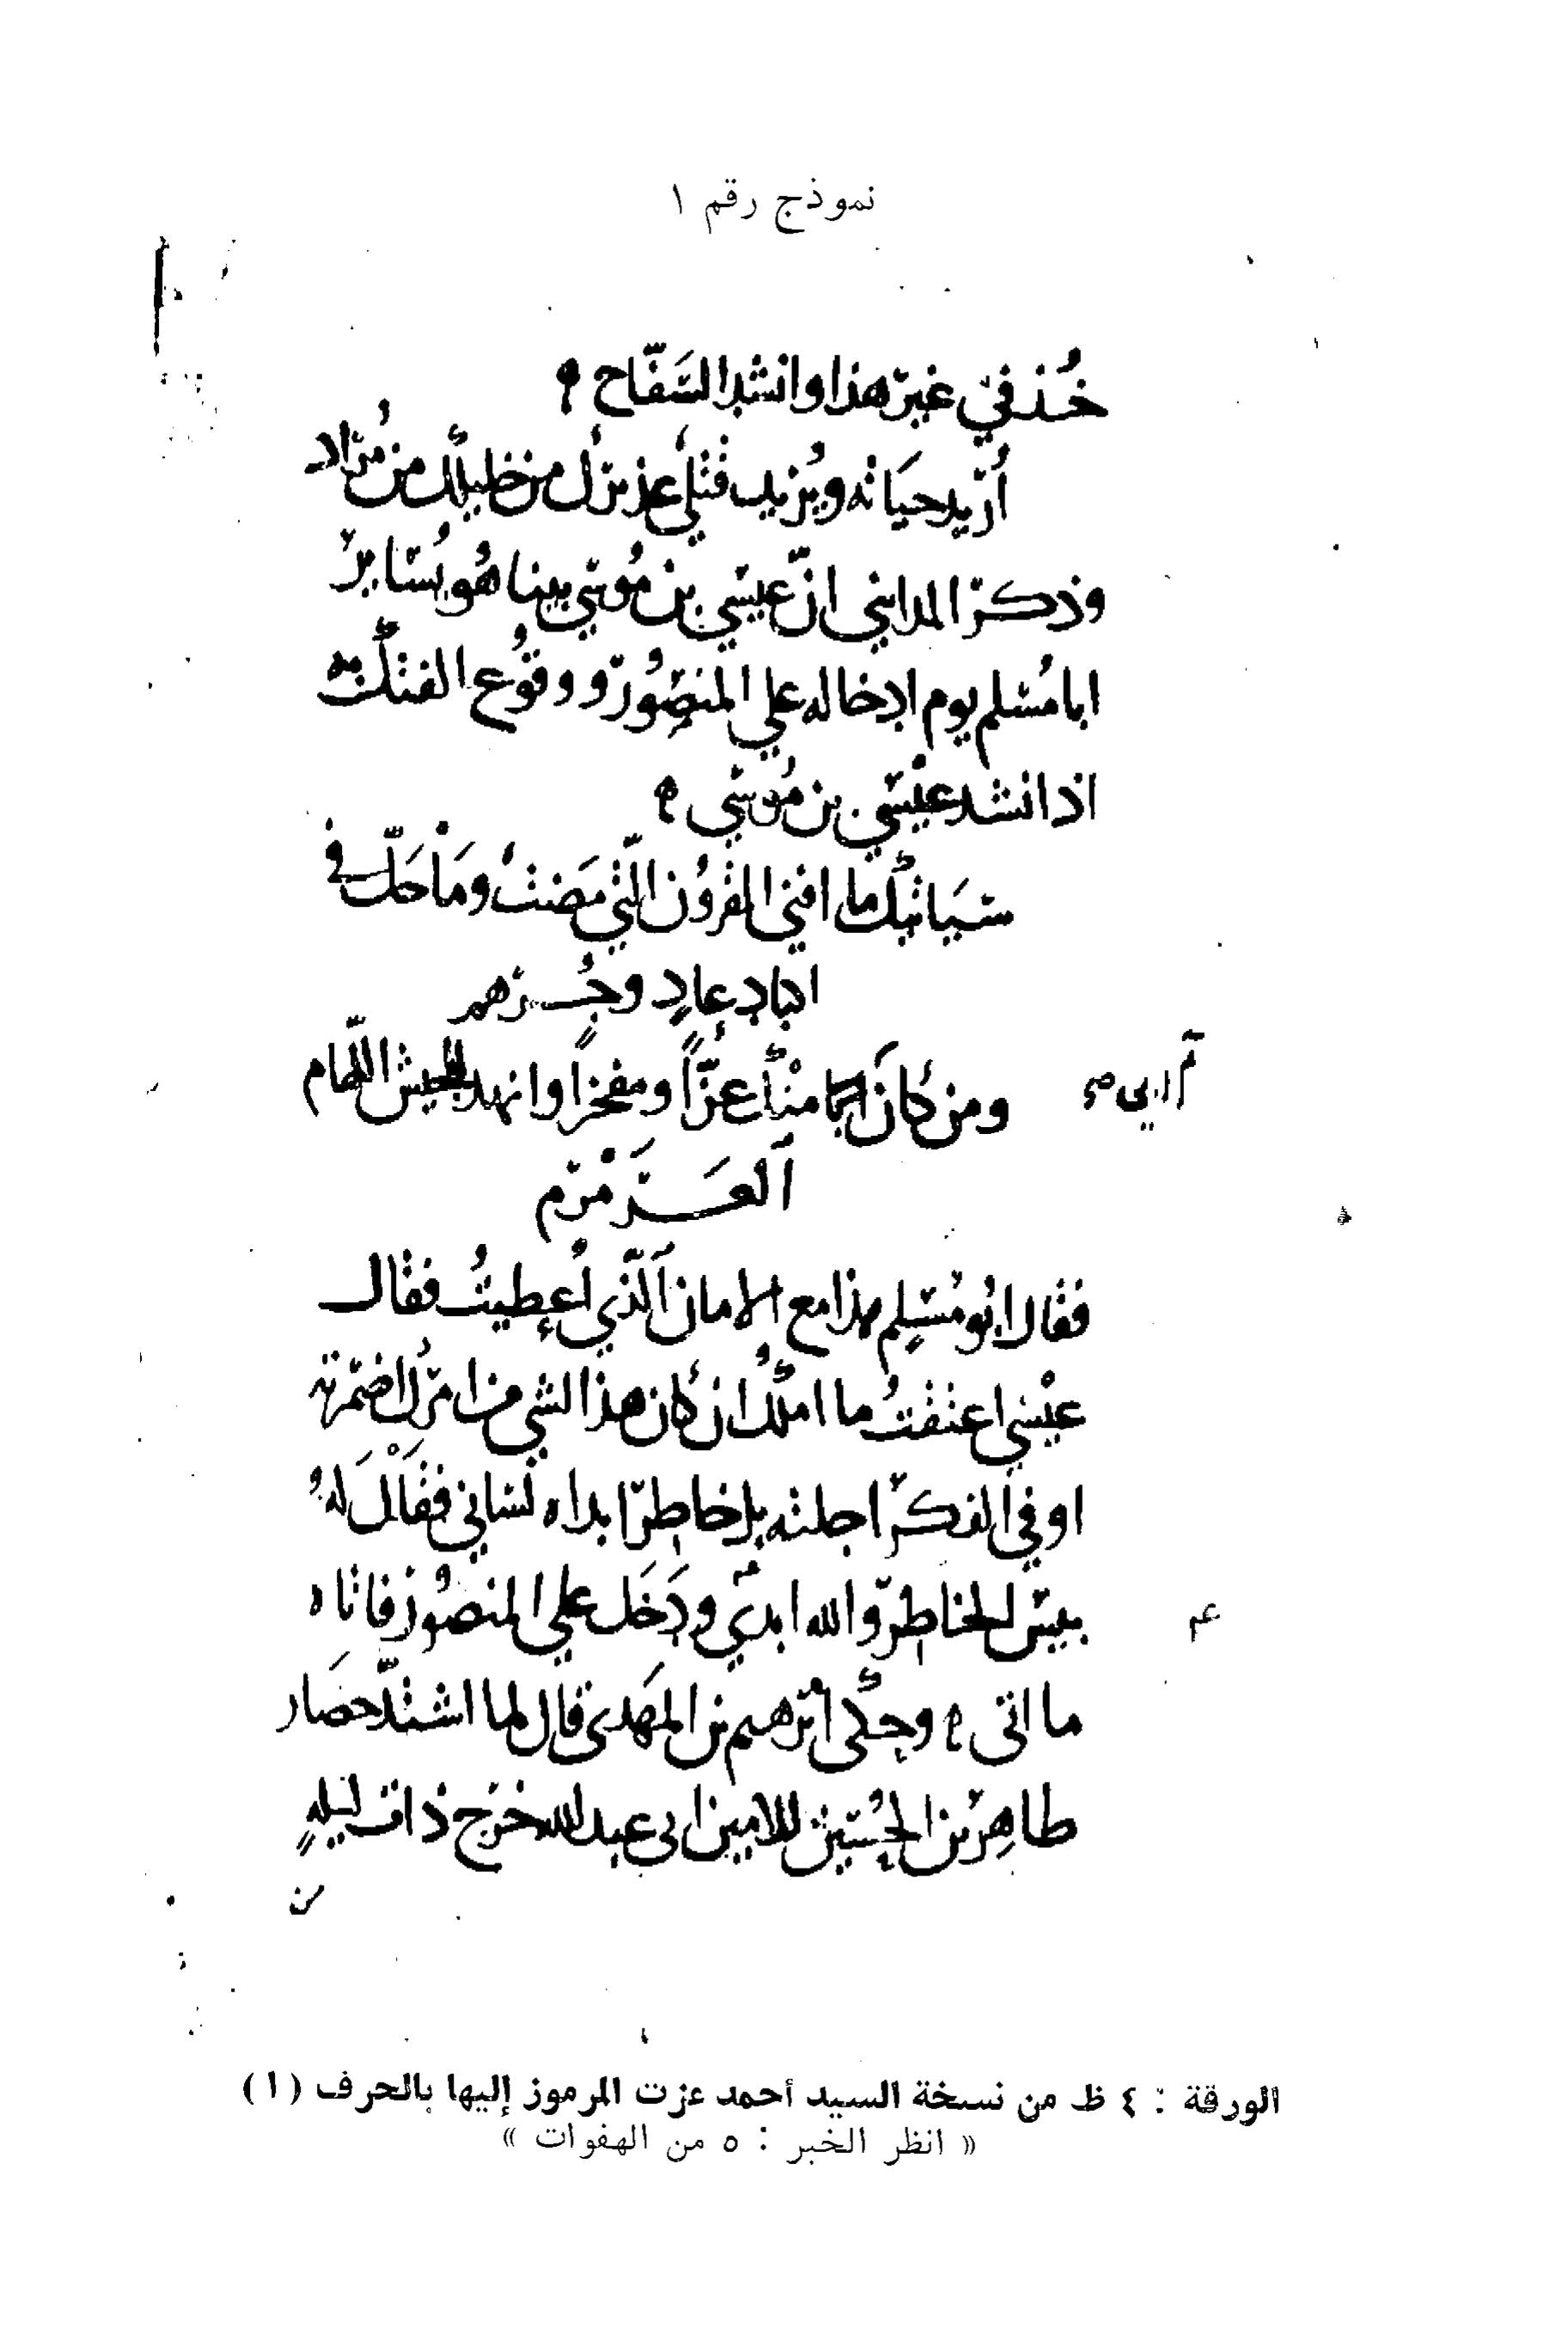 نموذج رقم ١
خُذ في غير هذا وانشد السَّفّاح
أُريد حيَاته ويُريد قتلي عذيرك من خليلك من مُراد
وذكر المدايني انّ عيسي بن مُوسي بينا هو يُساير
ابا مُسلم يوم ادخاله علي المنصُور ووقُوع الفتك به
اذ انشد عيسي بن مُوسي
سَياتيك ما افني القرُون الّتي مَضت ومَا حَلّ في
اكناف عادٍ وجُرهم
ومن كانَ امنأ منك عزّاً ومفخرا وانهد للجيش اللّهام
العَرَمْرَم
فقال ابُو مُسلم هذا مع الامان الّذي اُعطيتُ فقال
عيسي اعتقتُ ما املكُ ان كان هذا الشي من امرك اضمرته
او في الفكر اجلته بل خاطر ابداه لساني فقَالَ لهُ
بيس الخاطر والله ابدي ودَخَل علي المنصُور فاتاه
عم
ما اتى وحكى ابرهيم بن المَهدى قال لما اشتدّ حصَار
طاهِر بن الحُسَين للامين ابى عبد الله خرج ذات ليلهٍ
من
الورقة : ٤ ظ من نسخة السيد أحمد عزت المرموز إليها بالحرف (١)
« انظر الخبر : ٥ من الهفوات »